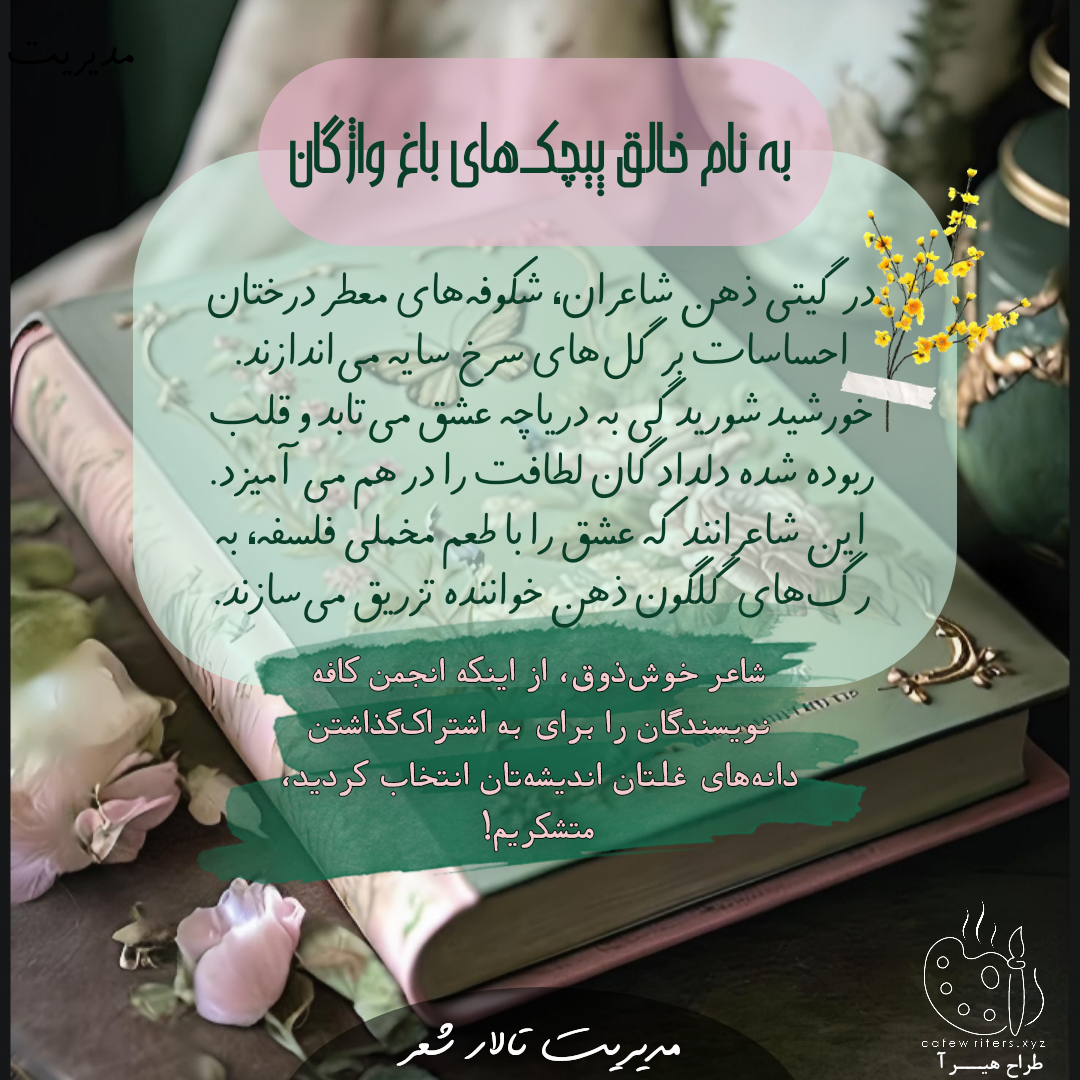 مدیریت
به نام خالق پیچک‌های باغ واژگان
در گیتی ذهن شاعران، شکوفه‌های معطر درختان
احساسات بر گل‌های سرخ سایه می‌اندازند.
خورشید شوریدگی به دریاچه عشق می‌تابد و قلب
ربوده شده دلدادگان لطافت را در هم می آمیزد.
این شاعرانند که عشق را با طعم مخملی فلسفه، به
رگ‌های گلگون ذهن خواننده تزریق می‌سازند.
شاعر خوش‌ذوق، از اینکه انجمن کافه
نویسندگان را برای به اشتراک‌گذاشتن
دانه‌های غلتان اندیشه‌تان انتخاب کردید،
متشکریم!
مدیریت تالار شعر
cafewriters.xyz
طراح هیــرآ